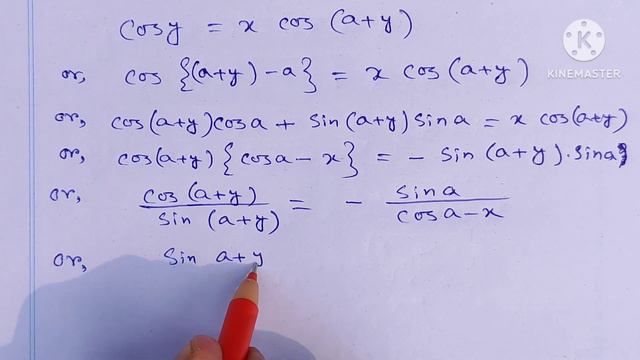 cos y = x cos (a+y)
K
KINEMASTER
or, cos {(a+y) - a} = x cos (a+y)
or, cos(a+y) cos a + sin(a+y) sin a = x cos(a+y)
or, cos(a+y) {cos a - x} = - sin (a+y) . sin a}
or, cos (a+y) / sin (a+y) = - sin a / cos a - x
or, sin a+y